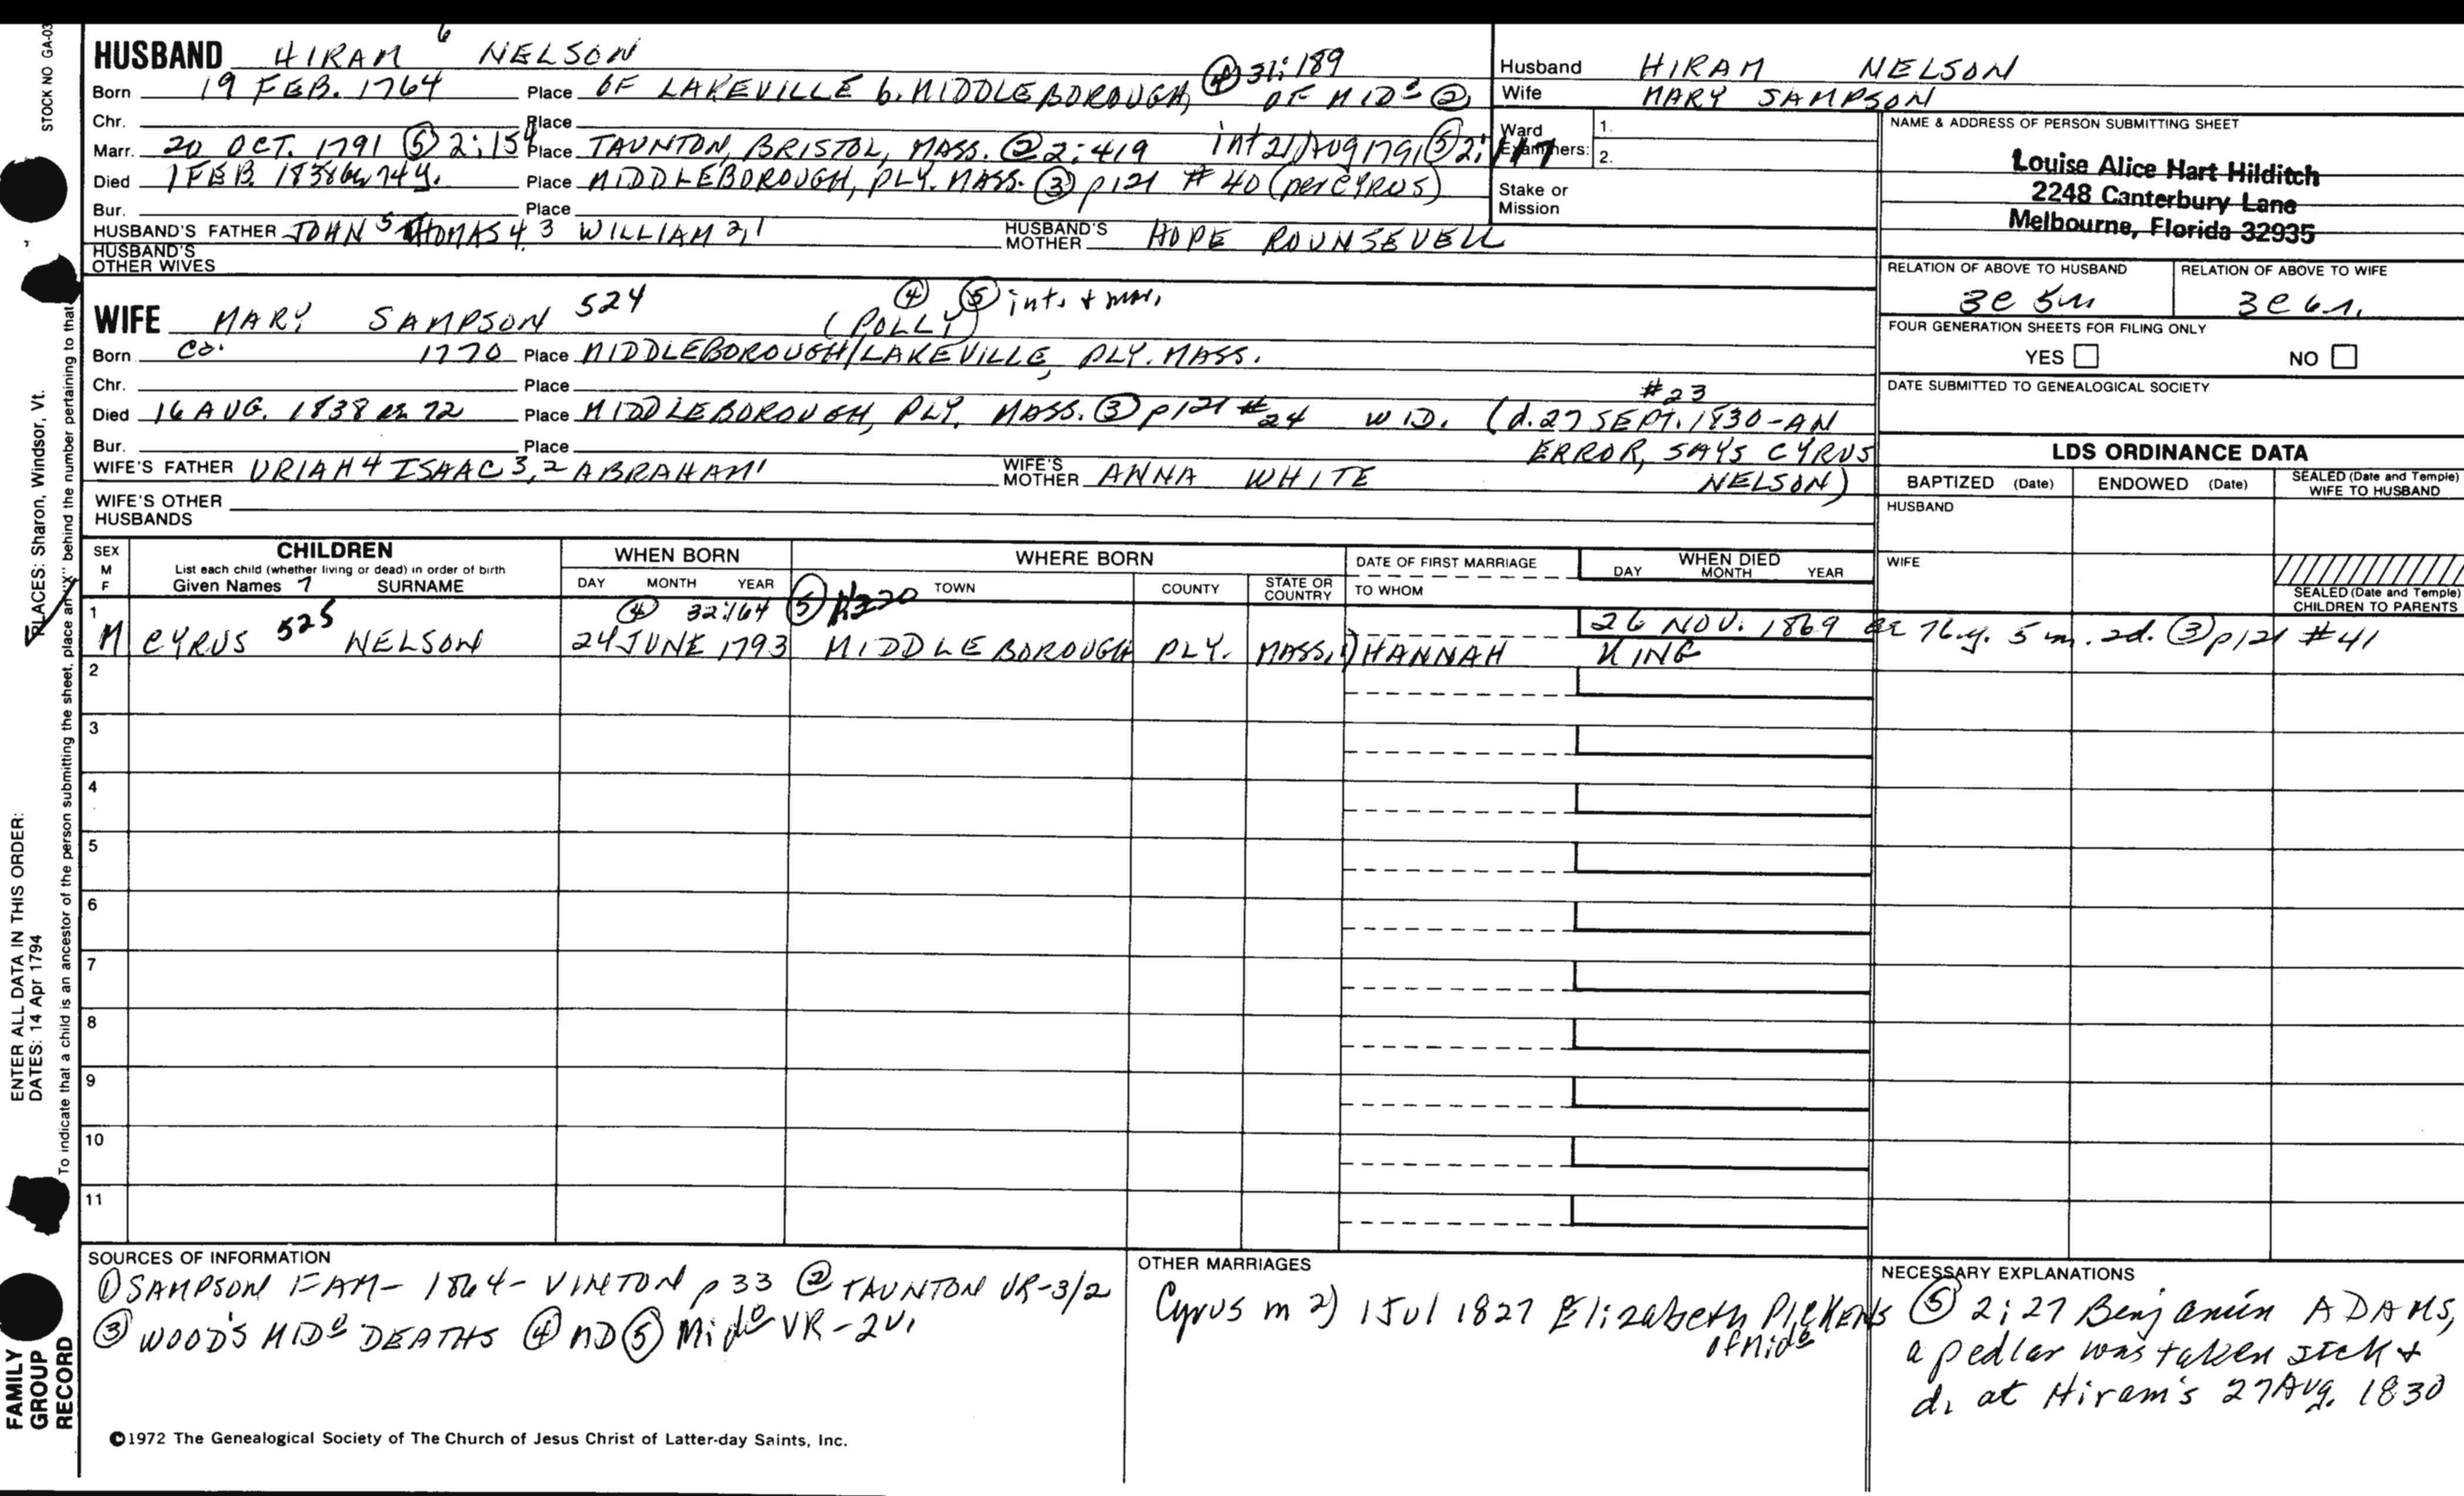 STOCK NO GA-03
HUSBAND HIRAM 6 NELSON
Born 19 FEB. 1764 Place OF LAKEVILLE b. MIDDLEBOROUGH, ④ 31:189 OF MIDº ②
Chr. Place
Marr. 20 OCT. 1791 ⑤ 2:154 Place TAUNTON, BRISTOL, MASS. ② 2:419 int 21 Aug 1791 ⑤ 2:117
Died 1 FEB. 1838 ae 74y. Place MIDDLEBOROUGH, PLY. MASS. ③ p121 #40 (per CYRUS)
Bur. Place
HUSBAND'S FATHER JOHN 5 THOMAS 4,3 WILLIAM 2,1 HUSBAND'S MOTHER HOPE ROUNSEVELL
HUSBAND'S OTHER WIVES
WIFE MARY SAMPSON 524 (POLLY) ④ ⑤ ints + mar.
Born Ca. 1770 Place MIDDLEBOROUGH/LAKEVILLE, PLY. MASS.
Chr. Place
Died 16 AUG. 1838 ae 72 Place MIDDLEBOROUGH, PLY. MASS. ③ p121 #24 WID. #23 (d. 27 SEPT. 1830-AN ERROR, SAYS CYRUS NELSON)
Bur. Place
WIFE'S FATHER URIAH 4 ISAAC 3,2 ABRAHAM 1 WIFE'S MOTHER ANNA WHITE
WIFE'S OTHER HUSBANDS
Husband HIRAM NELSON
Wife MARY SAMPSON
Ward Examiners: 1. 2.
Stake or Mission
NAME & ADDRESS OF PERSON SUBMITTING SHEET
Louise Alice Hart Hilditch
2248 Canterbury Lane
Melbourne, Florida 32935
RELATION OF ABOVE TO HUSBAND RELATION OF ABOVE TO WIFE
FOUR GENERATION SHEETS FOR FILING ONLY
YES NO
DATE SUBMITTED TO GENEALOGICAL SOCIETY
LDS ORDINANCE DATA
BAPTIZED (Date) ENDOWED (Date) SEALED (Date and Temple) WIFE TO HUSBAND
HUSBAND
WIFE
SEALED (Date and Temple) CHILDREN TO PARENTS
SEX M F
CHILDREN
List each child (whether living or dead) in order of birth
Given Names 7 SURNAME
WHEN BORN
DAY MONTH YEAR
WHERE BORN
TOWN COUNTY STATE OR COUNTRY
DATE OF FIRST MARRIAGE
TO WHOM
WHEN DIED
DAY MONTH YEAR
④ 32:164 ⑤
1 M CYRUS 525 NELSON 24 JUNE 1793 MIDDLEBOROUGH PLY. MASS. 1) HANNAH KING 26 NOV. 1869 ae 76y. 5 m. 2d. ③ p121 #41
2
3
4
5
6
7
8
9
10
11
SOURCES OF INFORMATION
① SAMPSON FAM- 1864- VINTON p 33 ② TAUNTON VR-3/2
③ WOOD'S MIDº DEATHS ④ MD ⑤ Midº VR-2v.
OTHER MARRIAGES
Cyrus m 2) 1 Jul 1827 Elizabeth Pickens
of Midº
NECESSARY EXPLANATIONS
⑤ 2:27 Benjamin ADAMS,
a pedlar was taken sick +
d. at Hiram's 27 Aug. 1830
©1972 The Genealogical Society of The Church of Jesus Christ of Latter-day Saints, Inc.
FAMILY GROUP RECORD
ENTER ALL DATA IN THIS ORDER:
DATES: 14 Apr 1794
PLACES: Sharon, Windsor, Vt.
To indicate that a child is an ancestor of the person submitting the sheet, place an "X" behind the number pertaining to that